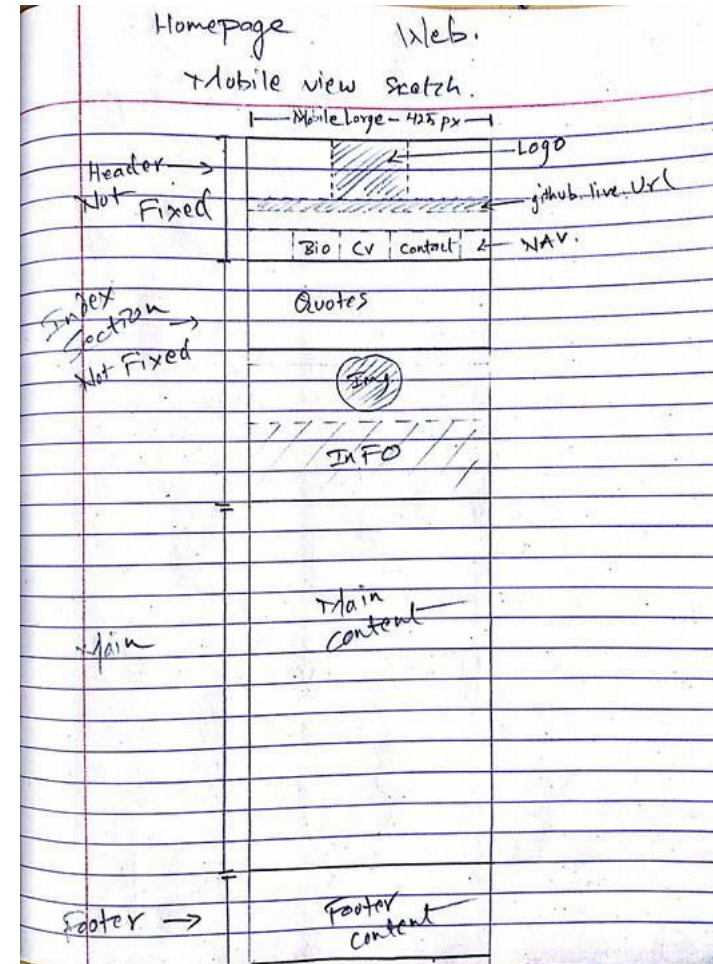 Homepage Web.
Mobile view Sketch.
Mobile Large - 425 px
Logo
Header
Not Fixed
github.live.Url
Bio CV Contact
NAV.
Index Section
Not Fixed
Quotes
Img
InFO
Main
Main content
Footer
Footer content